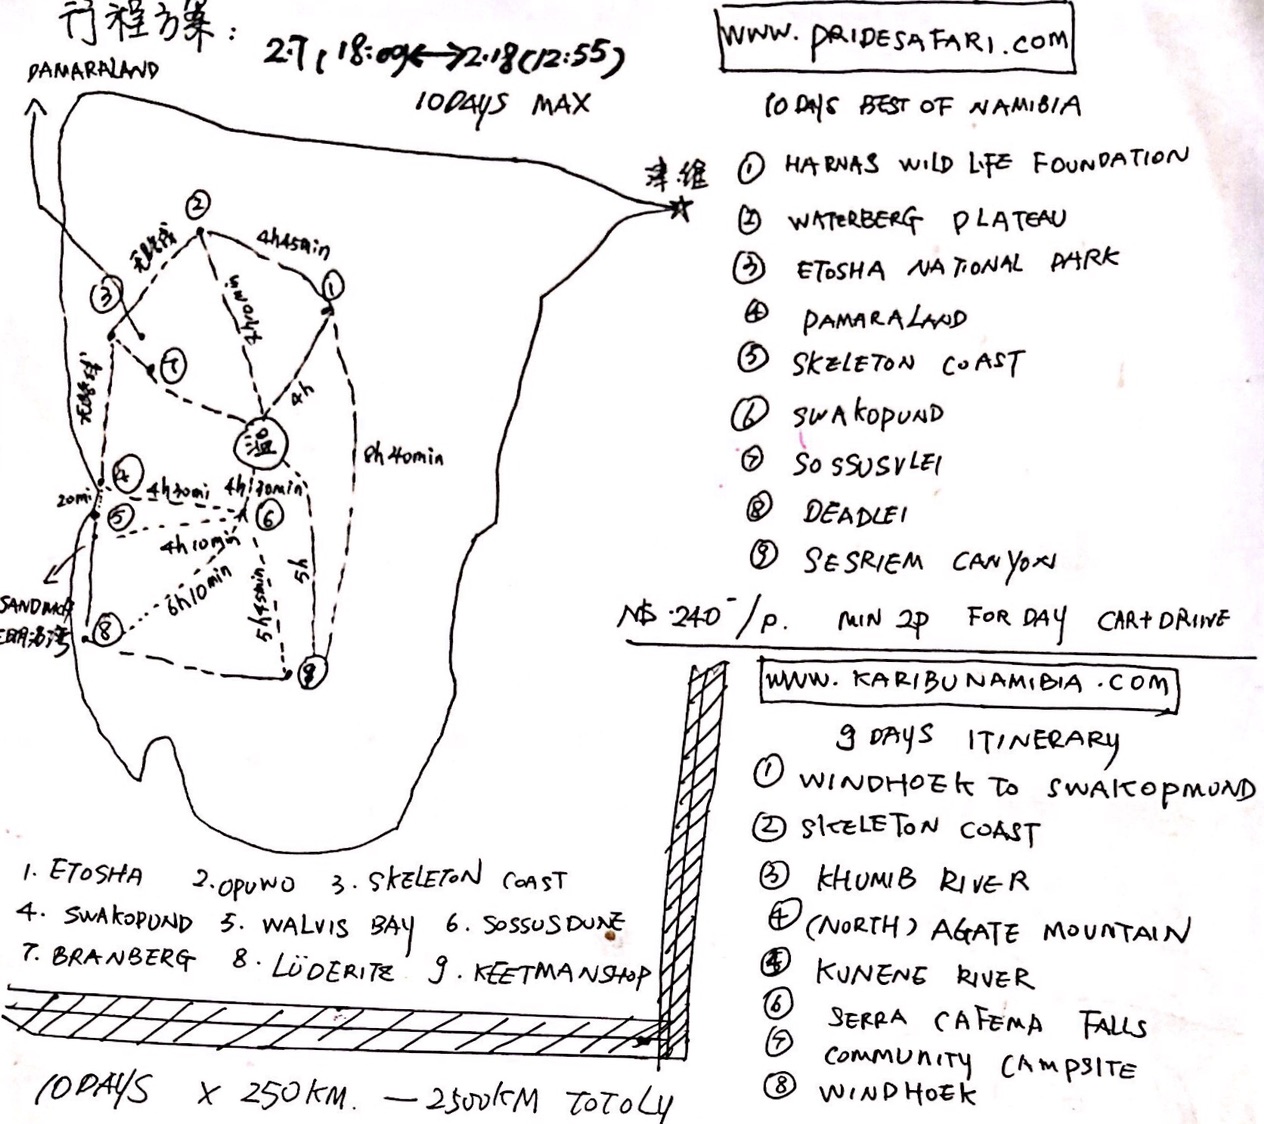 行程方案:
2.7(18:00)↔2.18(12:55)
10DAYS MAX
DAMARALAND
津·维
②
4h45min
无路线
③
①
7h10min
⑦
4h
无路线
8h40min
④
20mi
4h30mi
4h30min
⑤
⑥
4h10min
6h10min
5h45min
5h
⑧
⑨
1. ETOSHA 2.OPUWO 3. SKELETON COAST
4. SWAKOPUND 5. WALVIS BAY 6. SOSSUSDUNE
7. BRANBERG 8. LÜDERITZ 9. KEETMANSHOP
10DAYS X 250KM. — 2500KM TOTOLY
WWW.PRIDESAFARI.COM
10DAYS BEST OF NAMIBIA
① HARNAS WILD LIFE FOUNDATION
② WATERBERG PLATEAU
③ ETOSHA NATIONAL PARK
④ DAMARALAND
⑤ SKELETON COAST
⑥ SWAKOPUND
⑦ SOSSUSVLEI
⑧ DEADLEI
⑨ SESRIEM CANYON
N$ 240-/P. MIN 2P FOR DAY CAR+DRIVE
WWW.KARIBUNAMIBIA.COM
9 DAYS ITINERARY
① WINDHOEK TO SWAKOPMUND
② SKELETON COAST
③ KHUMIB RIVER
④ (NORTH) AGATE MOUNTAIN
⑤ KUNENE RIVER
⑥ SERRA CAFEMA FALLS
⑦ COMMUNITY CAMPSITE
⑧ WINDHOEK